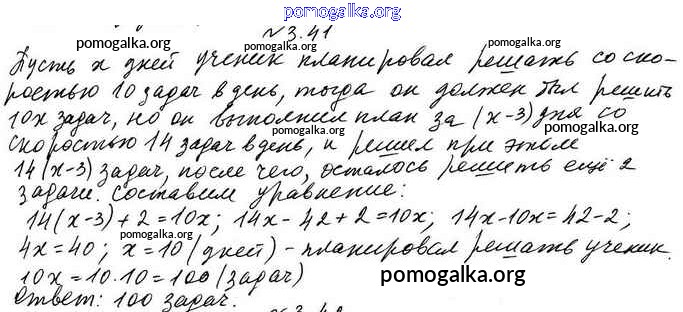 pomogalka.org
№3.41
pomogalka.org pomogalka.org
Пусть x дней ученик планировал решать со ско-
ростью 10 задач в день, тогда он должен был решить
10x задач, но он выполнил план за (x-3) дня со
pomogalka.org pomogalka.org
скоростью 14 задач в день, и решил при этом
14(x-3) задач, после чего, осталось решить ещё 2
pomogalka.org
задачи. Составим уравнение:
pomogalka.org
14(x-3)+2=10x; 14x-42+2=10x; 14x-10x=42-2;
pomogalka.org
4x=40; x=10 (дней) - планировал решать ученик.
10x=10·10=100 (задач)
pomogalka.org
Ответ: 100 задач.